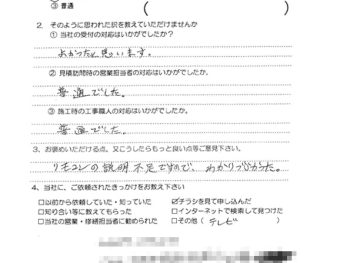 ③ 普通 ( )
2. そのように思われた訳を教えていただけませんか
① 当社の受付の対応はいかがでしたか？
よかったと思います。
② 見積訪問時の営業担当者の対応はいかがでしたか。
普通でした。
③ 施工時の工事職人の対応はいかがでしたか？
普通でした。
3. お褒めいただける点、又こうしたらもっと良い点等ご意見下さい。
リモコンの説明不足ですので、わかりづらかった。
4. 当社に、ご依頼されたきっかけをお教え下さい
□以前から依頼していた・知っていた ☑チラシを見て申し込んだ
□知り合い等に教えてもらった □インターネットで検索して見つけた
□当社の営業・修繕担当者に勧められた □その他 ( テレビ )